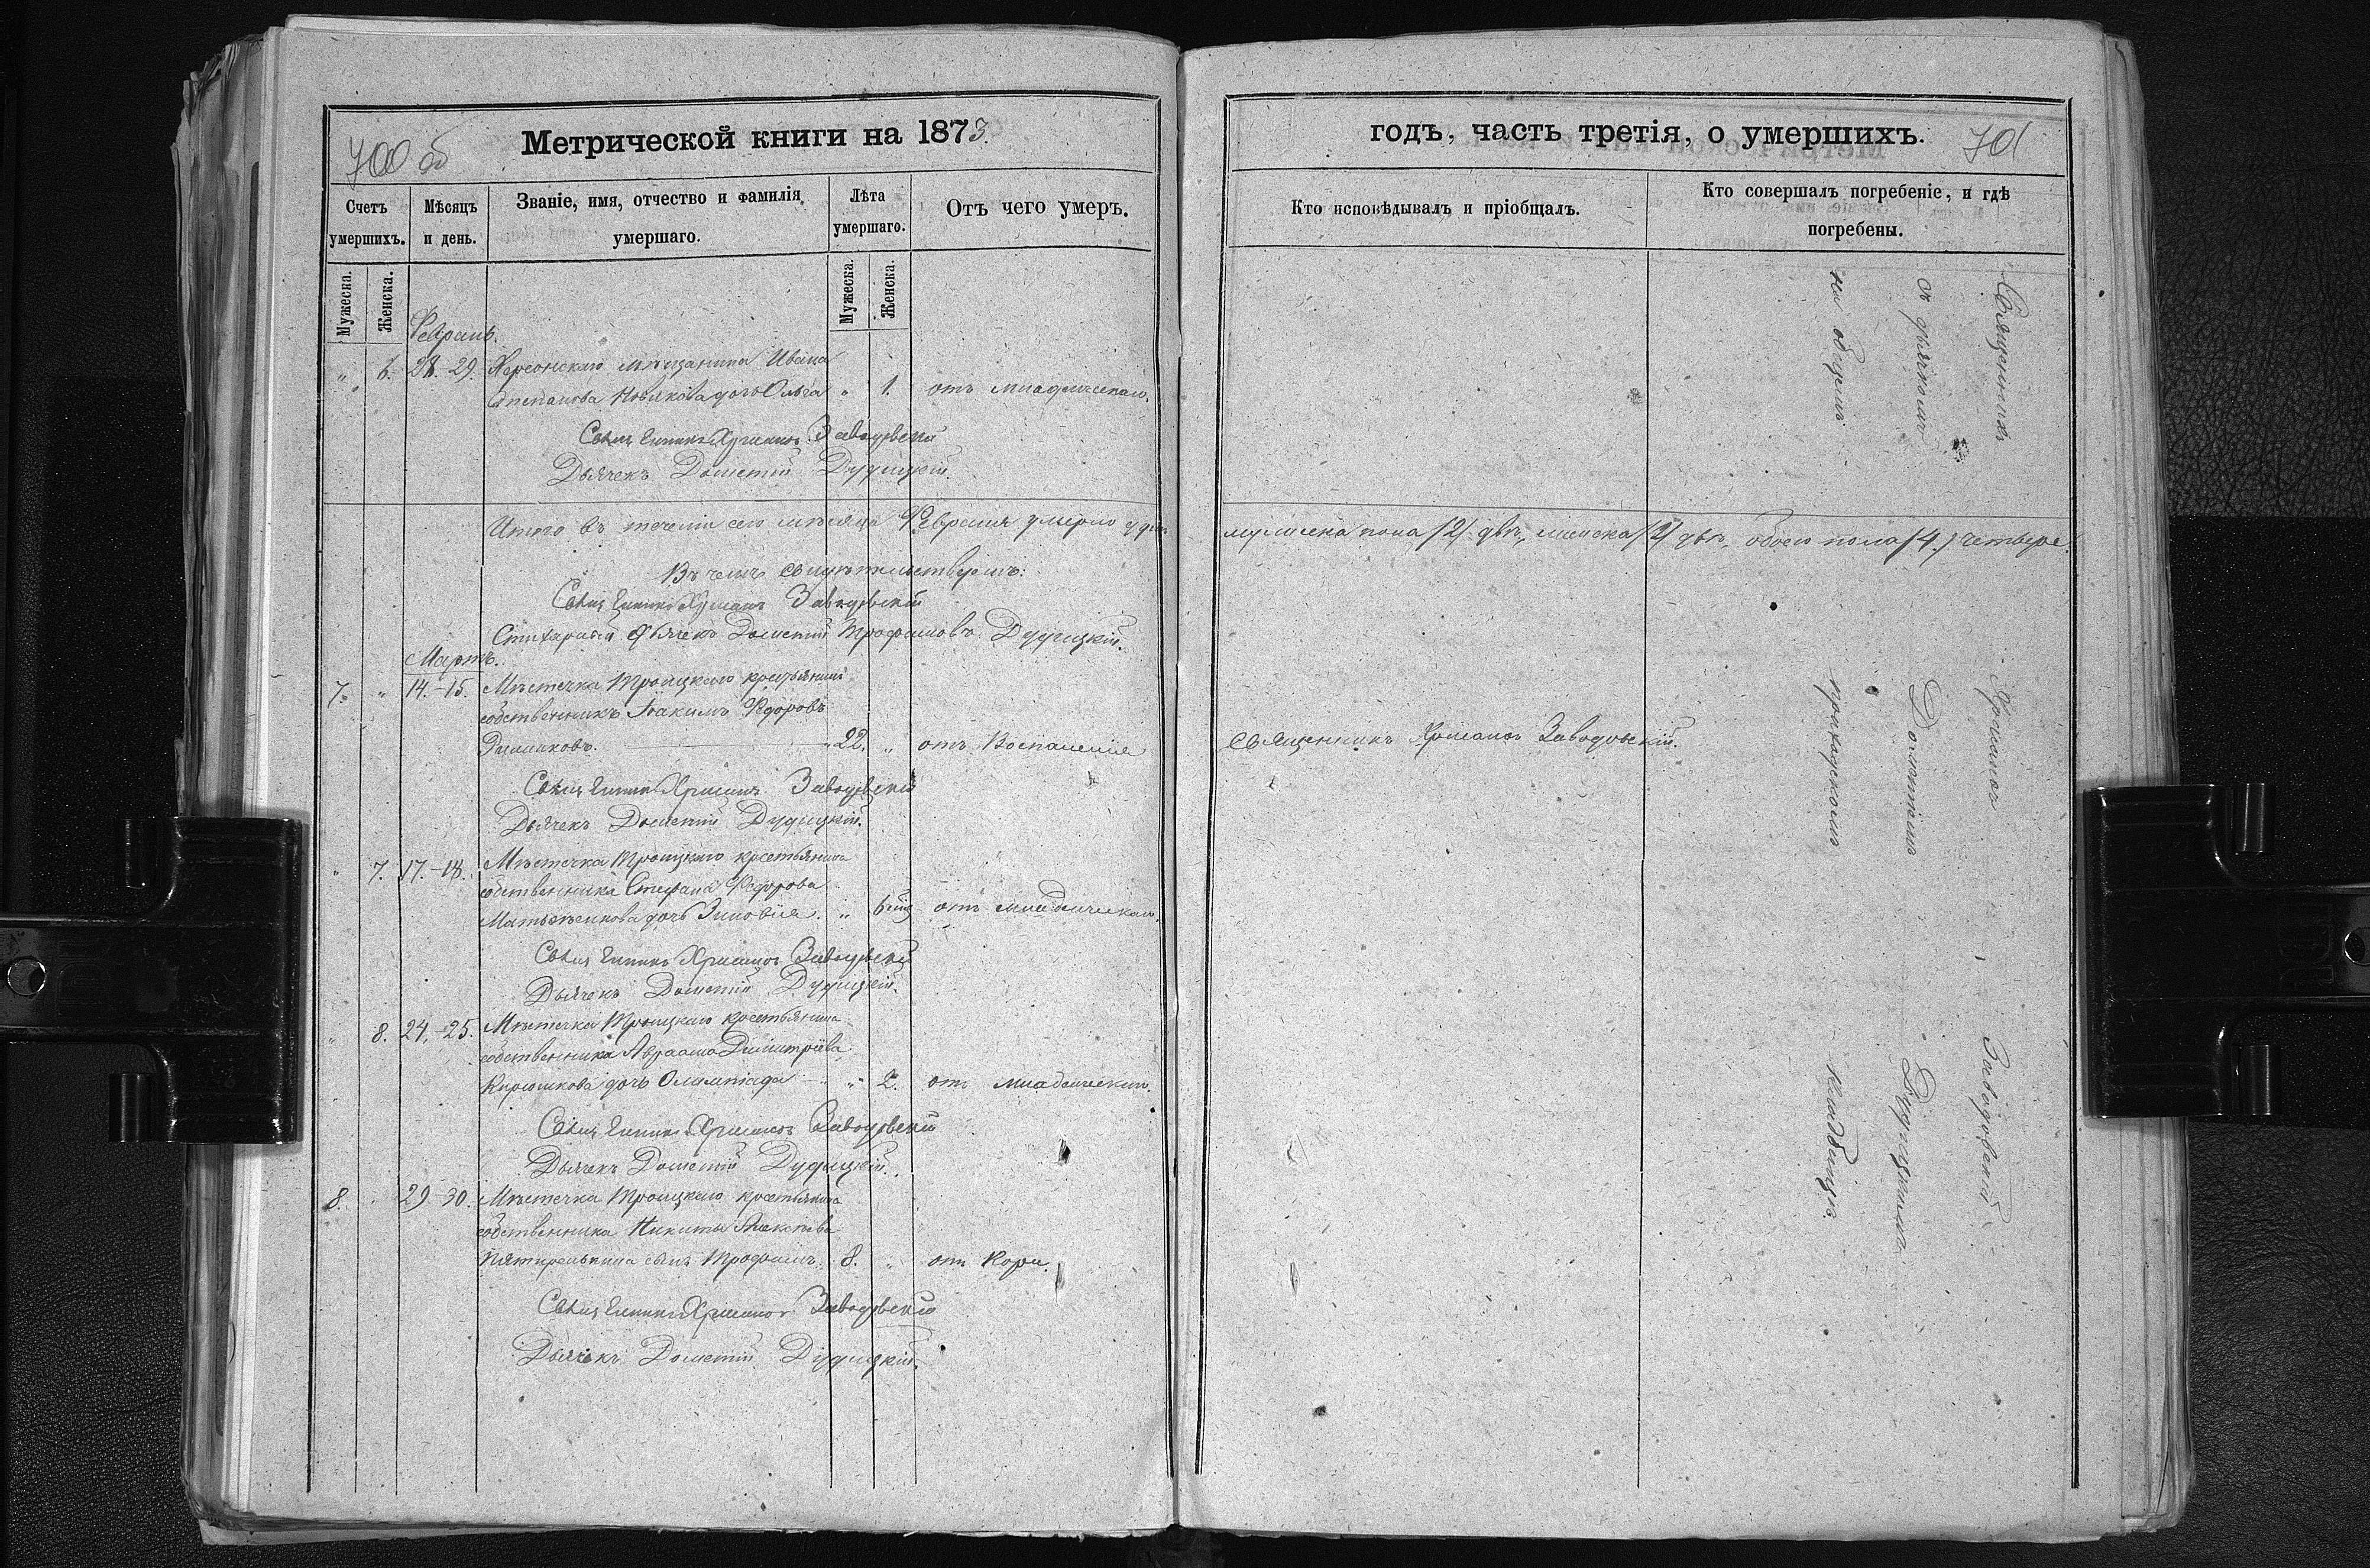 700 об
Метрической книги на 1873.
Счетъ умершихъ.
Мѣсяцъ и день.
Званіе, имя, отчество и фамилія умершаго.
Лѣта умершаго.
Отъ чего умеръ.
Мужеска.
Женска.
Мужеска.
Женска.
Февраль.
„ 6. 28.-29. Херсонскаго мѣщанина Ивана
Степанова Новикова дочь Ольга „ 1. отъ младенческаго.
Священникъ Заводовскій
Дьячекъ Дометій Дудицкій.
Итого въ теченіи сего мѣсяца Февраля умерло
Въ чемъ свидѣтельствуемъ:
Священникъ Заводовскій
Стихарный дьячекъ Дометій Трофимовъ Дудицкій.
Мартъ.
7. „ 14.-15. Мѣстечка Троицкаго крестьянинъ
собственникъ Іоакимъ Федоровъ
22. „ отъ Воспаленія
Священникъ Заводовскій
Дьячекъ Дометій Дудицкій.
„ 7. 17.-18. Мѣстечка Троицкаго крестьянина
собственника Стефана Федорова
дочь Зиновія. „ 6 отъ младенческаго.
Священникъ Заводовскій
Дьячекъ Дометій Дудицкій.
„ 8. 24.-25. Мѣстечка Троицкаго крестьянина
собственника Авраама Димитріева
Кирюшкова дочь Олимпіада „ 2. отъ младенческаго.
Священникъ Заводовскій
Дьячекъ Дометій Дудицкій.
8. 29 30. Мѣстечка Троицкаго крестьянина
собственника Никиты Алексѣева
сынъ Трофимъ. 8. „ отъ Кори.
Священникъ Заводовскій
Дьячекъ Дометій Дудицкій.
годъ, часть третія, о умершихъ.
701
Кто исповѣдывалъ и пріобщалъ.
Кто совершалъ погребеніе, и гдѣ погребены.
мужеска пола /2/ два, женска /2/ двѣ, обоего пола /4./ четыре.
Священникъ Заводовскій.
Священникъ Заводовскій
съ дьячкомъ Дометіемъ Дудицкимъ.
на общемъ приходскомъ кладбищѣ.